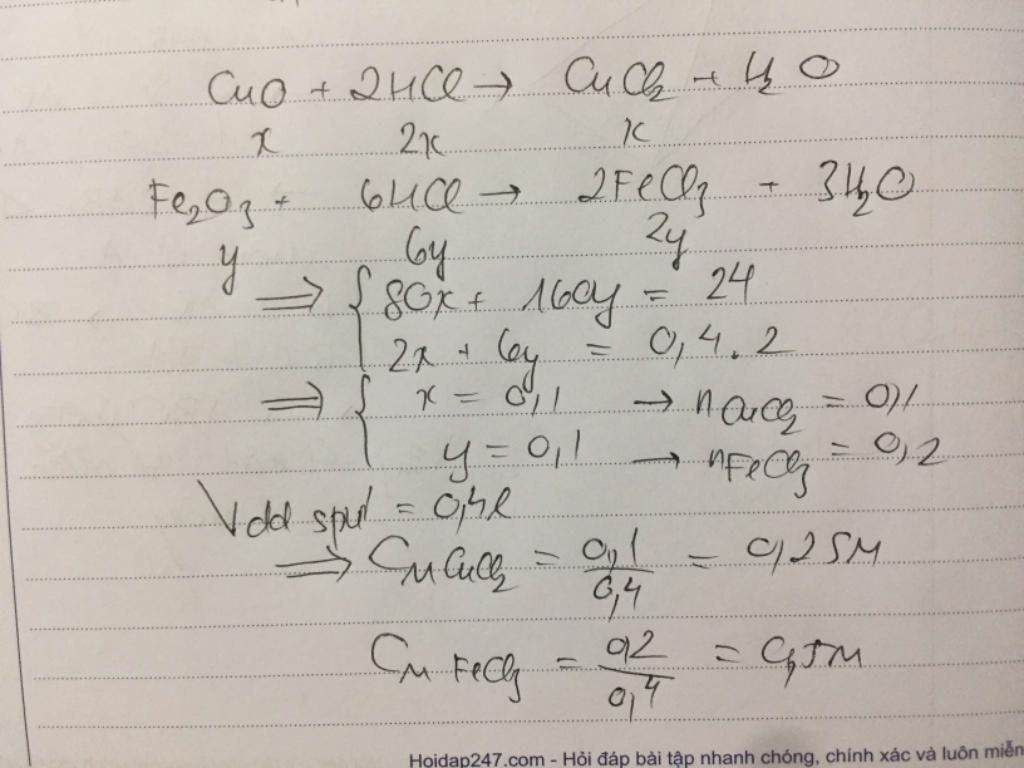 CuO + 2HCl → CuCl₂ + H₂O
x 2x x
Fe₂O₃ + 6HCl → 2FeCl₃ + 3H₂O
y 6y 2y
⟹ { 80x + 160y = 24
2x + 6y = 0,4.2
⟹ { x = 0,1 → nCuCl₂ = 0,1
y = 0,1 → nFeCl₃ = 0,2
Vdd spư = 0,4l
⟹ CM CuCl₂ = 0,1/0,4 = 0,25M
CM FeCl₃ = 0,2/0,4 = 0,5M
Hoidap247.com - Hỏi đáp bài tập nhanh chóng, chính xác và luôn miễn